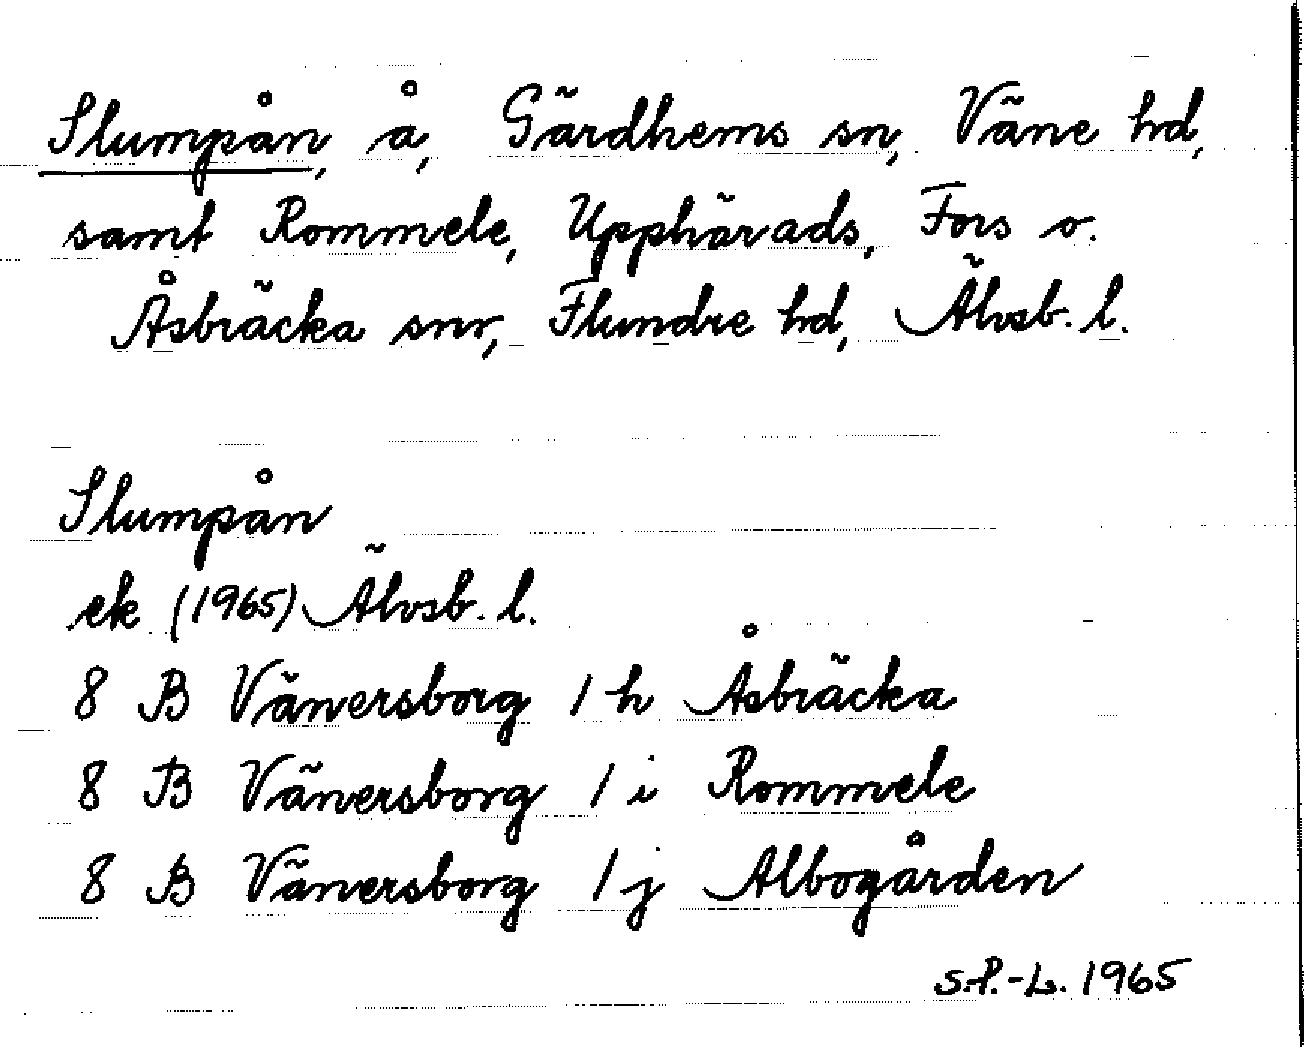 Slumpån, å, Gärdhems sn, Väne hd,
samt Rommele, Upphärads, Fors o.
Åsbräcka snr, Flundre hd, Älvsb. l.
Slumpån
ek (1965) Älvsb. l.
8 B Vänersborg 1 h Åsbräcka
8 B Vänersborg 1 i Rommele
8 B Vänersborg 1 j Albogården
S.P.-L. 1965